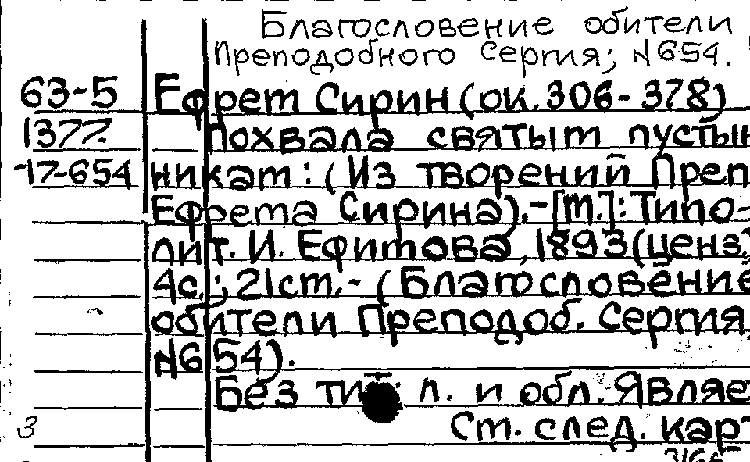 Благословение обители
Преподобного Сергия; №654.
63-5 Ефрем Сирин (ок. 306-378)
1377. Похвала святым пустын
17-654 никам: (Из творений Преп
Ефрема Сирина).-[М.]: Типо-
лит. И. Ефимова, 1893(ценз.)
4с.; 21см.- (Благословение
обители Преподоб. Сергия,
№654).
Без тит. л. и обл. Являе
3 См. след. кар